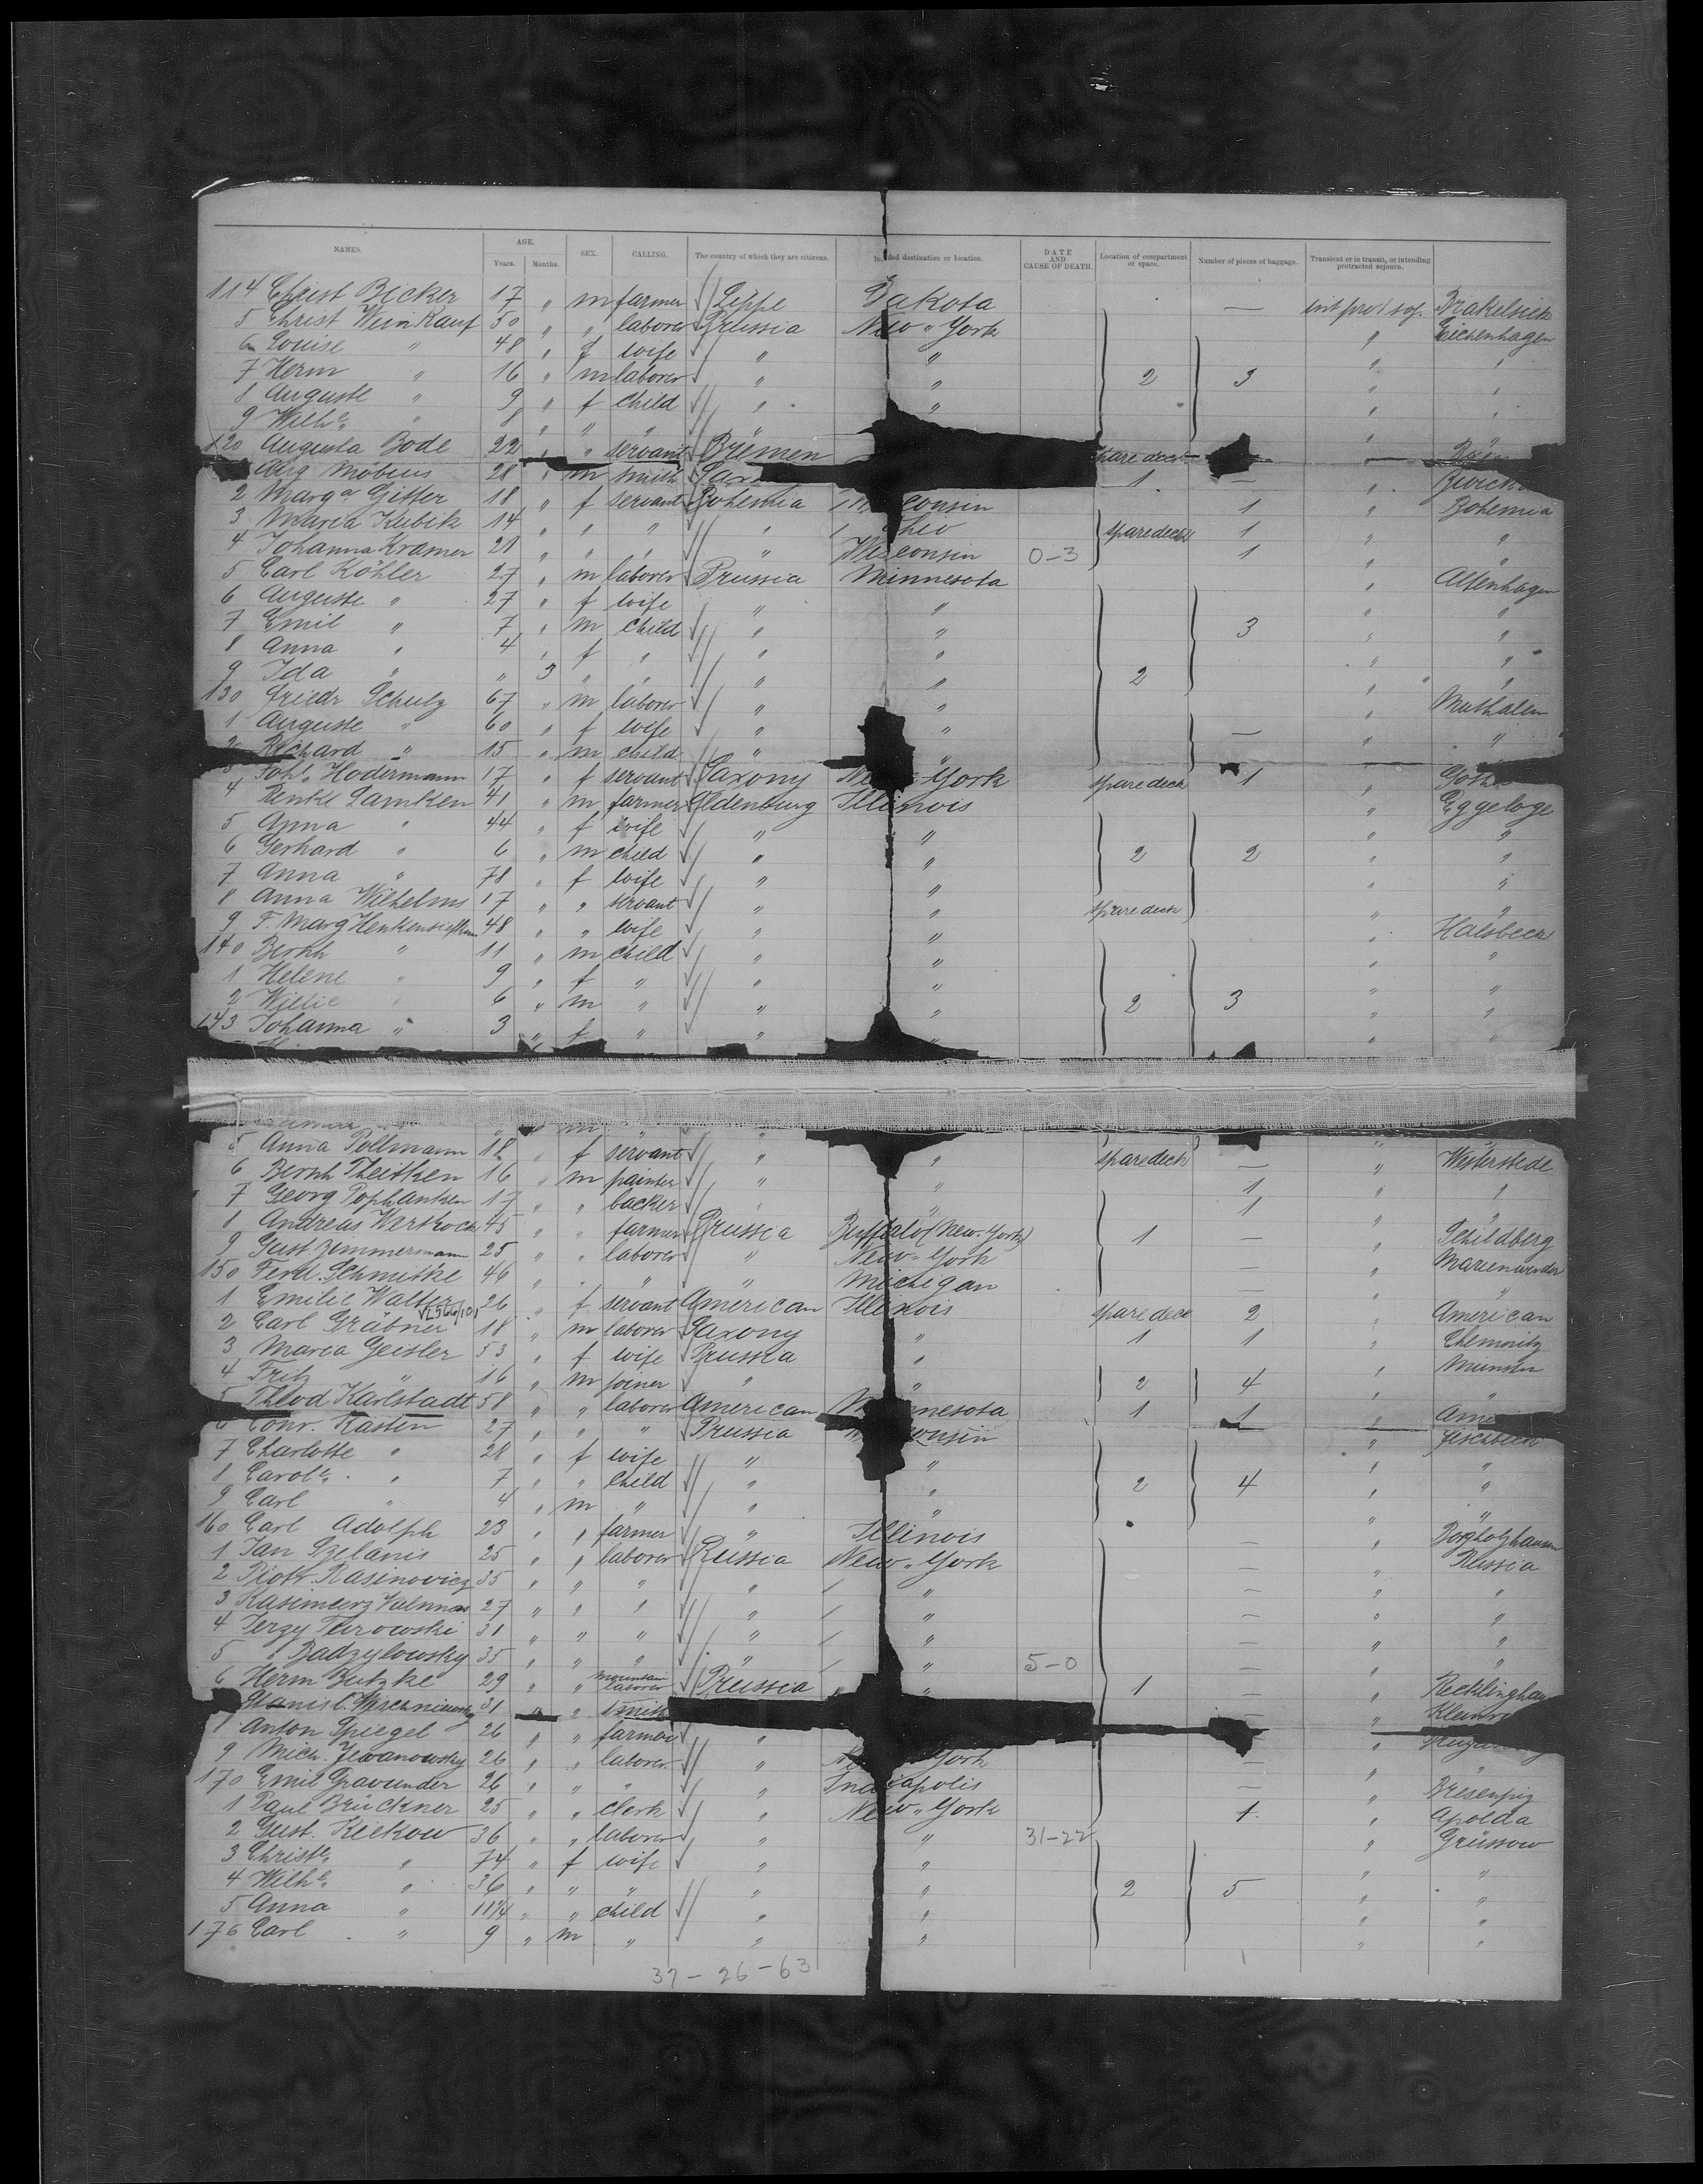 NAMES. AGE. Years. Months. SEX. CALLING. The country of which they are citizens. Intended destination or location. DATE AND CAUSE OF DEATH. Location of compartment or space. Number of pieces of baggage. Transient or in transit, or intending protracted sojourn.
114 Christ Becker 17 " m farmer Lippe Dakota — int prot soj. Brakelsiek
5 Christ Weinkauf 50 " " laborer Prussia New-York " Eichenhagen
6 Louise " 48 " f wife " " " "
7 Herm " 16 " m laborer " " 2 3 " "
8 Auguste " 9 " f child " " " "
9 Wilh. " 8 " " " " "
120 Augusta Bode 22 " " servant Bremen spare deck
Aug Möbius 28 " m smith 1 — "
2 Marg. Gitter 18 " f servant Bohemia consin 1 " Bohemia
3 Maria Kubik 14 " " " " spare deck 1 " "
4 Johanna Kramer 21 " " " " Wisconsin 0-3 1 " "
5 Carl Köhler 27 " m laborer Prussia Minnesota " Altenhagen
6 Auguste " 27 " f wife " " " "
7 Emil " 7 " m child " " 3 " "
8 Anna " 4 " f " " " " "
9 Ida " " 3 " " " " 2 " "
130 Friedr Schulz 67 " m laborer " " "
1 Auguste " 60 " f wife " " — " "
2 Richard " 15 " m child " "
3 Joh. Hodermann 17 " f servant Saxony New York spare deck 1 "
4 Renke Lamken 41 " m farmer Oldenburg Illinois " Eggeloge
5 Anna " 44 " f wife " " " "
6 Gerhard " 6 " m child " " 2 2 " "
7 Anna " 78 " f wife " " " "
8 Anna Wilhelms 17 " " servant " " spare deck " "
9 F. Marg 48 " " wife " " " Halsbeck
140 Bernh " 11 " m child " " " "
1 Helene " 9 " f " " " " "
2 Willie " 6 " m " " " 2 3 " "
143 Johanna " 3 " f " " " " "
5 Anna Pollmann 18 " f servant " " spare deck — " Westerstede
6 Bernh Theilken 16 " m painter " " 1 " "
7 Georg Pophanken 17 " " backer " " 1 "
8 Andreas 45 " " farmer Prussia Buffalo (New-York) 1 — " Schildberg
9 Gust. Zimmermann 25 " " laborer " New-York — " Marienwerder
150 Ferd. Schmitke 46 " " " " Michigan — " "
1 Emilie Walter 26 " f servant American Illinois spare deck 2 " American
2 Carl Gräbner 18 " m laborer Saxony " 1 1 " Chemnitz
3 Maria Geisler 53 " f wife Prussia " " Münster
4 Fritz " 16 " m joiner " " 2 4 " "
5 Theod Karlstadt 58 " " laborer American Minnesota 1 1 "
6 Conr. Kasten 27 " " " Prussia "
7 Charlotte " 28 " f wife " " " "
8 Carol. " 7 " " child " " 2 4 " "
9 Carl " 4 " m " " " " "
160 Carl Adolph 23 " " farmer " Illinois — " Borgholzhausen
1 Jan 25 " " laborer Russia New-York — " Russia
2 Piotr. Rasinovicz 35 " " " " " — " "
3 Kasimierz 27 " " " " " — " "
4 Jerzy 31 " " " " " — " "
5 Badzylowsky 35 " " " " " 5-0 — " "
6 Herm Butzke 29 " " mountain laborer Prussia " 1 — "
31 " " smith
8 Anton Spiegel 26 " " farmer "
9 Mich. 26 " " laborer " York — "
170 Emil Gravunder 26 " " " " Indiapolis — "
1 Paul Brückner 25 " " clerk " New-York 1. " Apolda
2 Gust. Kickow 36 " " laborer " " 31-22 " Grüssow
3 Christ. " 74 " f wife " " " "
4 Wilh. " 36 " " " " " 2 5 " "
5 Anna " 11¼ " " child " " " "
176 Carl " 9 " m " " " " "
37-26-63